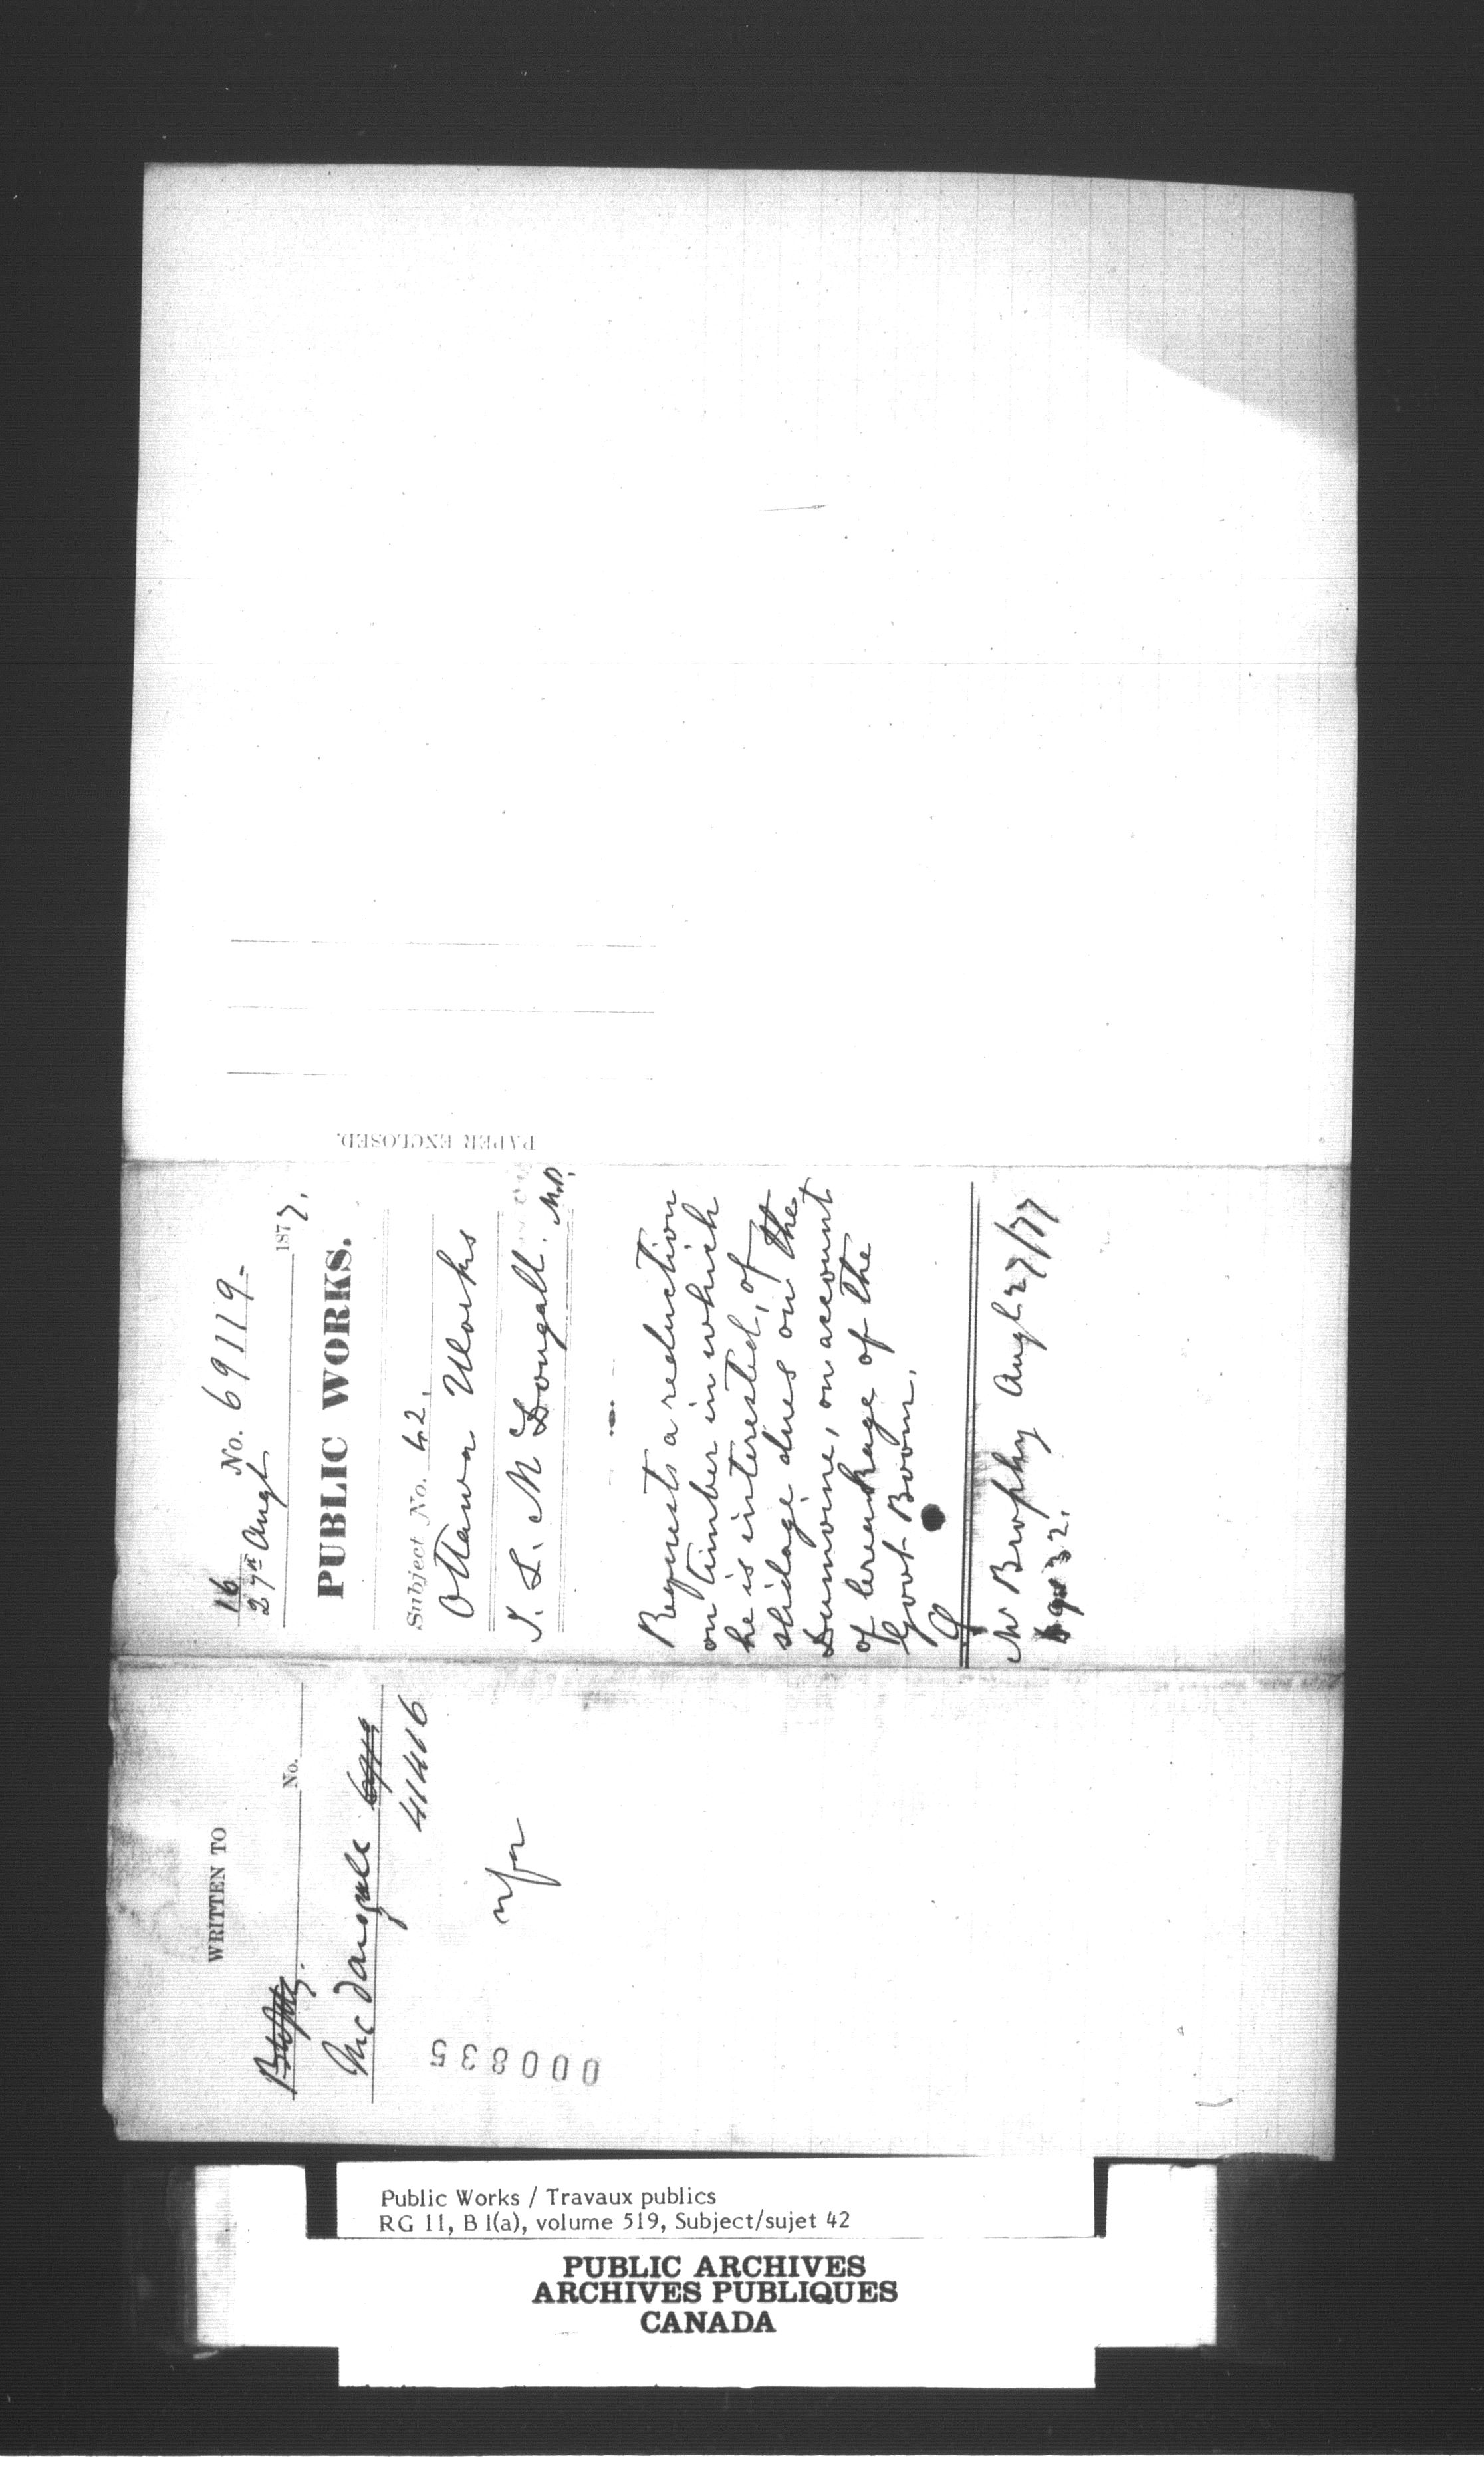 WRITTEN TO
No.
Brophy.
McDougall
41416
nfa
000835
16 No. 69119-
27th Augt 1877.
PUBLIC WORKS.
Subject No. 42.
Ottawa Works
J. L. McDougall. M.P.
Requests a reduction
on timber in which
he is interested, of
slidage dues on the
Dumoine, on account
of breakage of the
Govt Boom.
Mr Brophy Augt 27/77
PAPER ENCLOSED.
Public Works / Travaux publics
RG 11, B 1(a), volume 519, Subject/sujet 42
PUBLIC ARCHIVES
ARCHIVES PUBLIQUES
CANADA